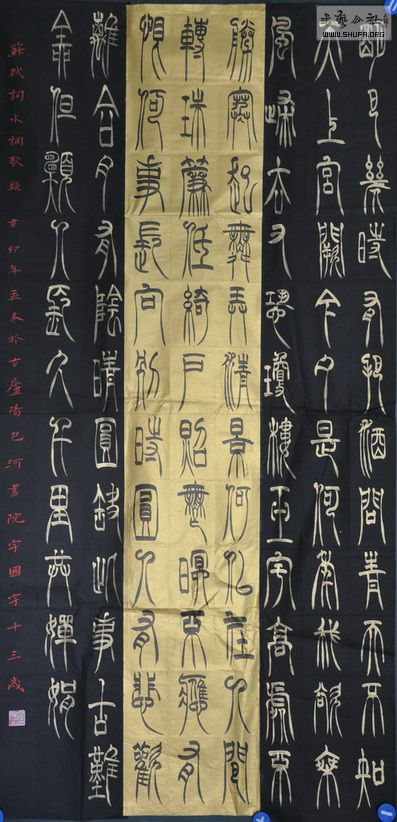 明月幾時有把酒問青天不知
天上宮闕今夕是何年我欲乘
風歸去又恐瓊樓玉宇高處不
勝寒起舞弄清景何佀在人間
轉珠簾低綺戶照無眠不應有
恨何事長向別時圓人有悲歡
離合月有陰晴圓缺此事古難
全但願人長久千里共嬋娟
蘇軾詞水調歌頭 辛卯年孟冬於古廬陽包河書院宇國宇十三歲
书艺公社
WWW.SHUFA.ORG